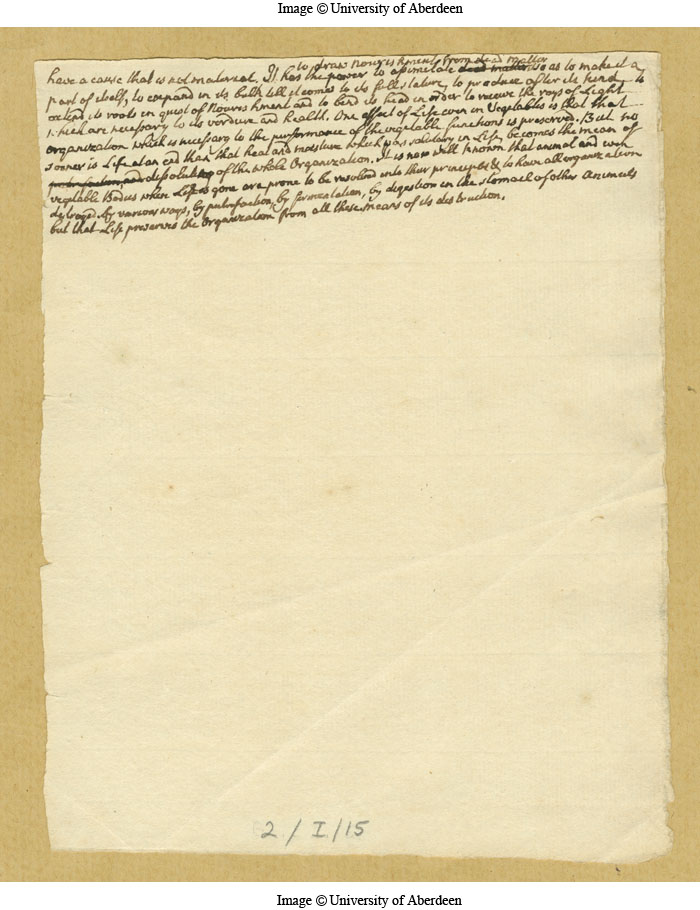 Image © University of Aberdeen
to draw nourishment from dead matter
have a cause that is not material. It has the power to assimelate dead matter so as to make it a
part of itself, to expand in its bulk till it comes to its full stature, to produce after its kind to
extend its roots in quest of Nourishment and to bend its head in order to receive the rays of Light
which are necessary to its verdure and health. One effect of Life even in Vegetables is that that
Organization which is necessary to the performance of the vegetable functions is preserved. But no
sooner is Life at an end than that heat and moisture which was salutary in Life becomes the mean of
putrefaction, and dissolution of the whole Organization. It is now well known that animal and even
vegetable Bodies when Life is gone are prone to be resolved into their principles & to have all organization
destroyed by various ways, by putrifaction, by fermentation, by digestion in the stomach of other Animals
but that Life preserves the Organization from all these means of its destruction.
2/I/15
Image © University of Aberdeen